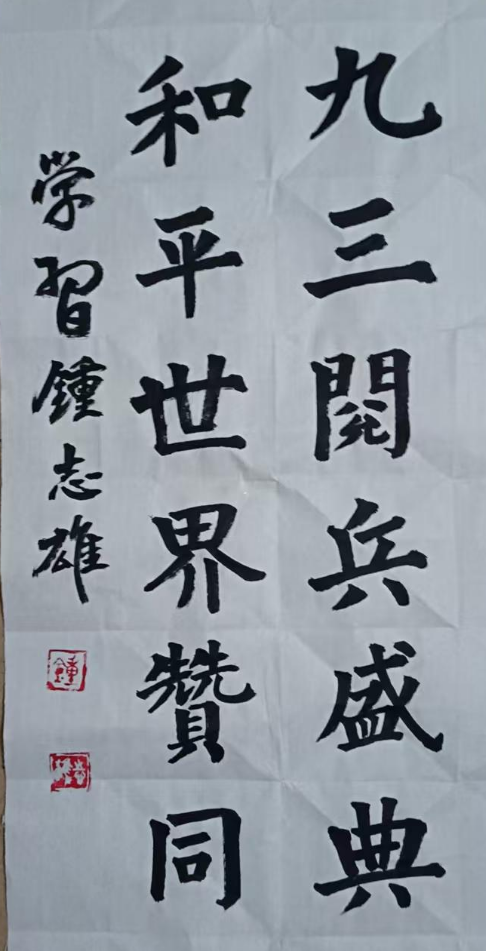 九三閱兵盛典
和平世界贊同
学習鍾志雄
鍾